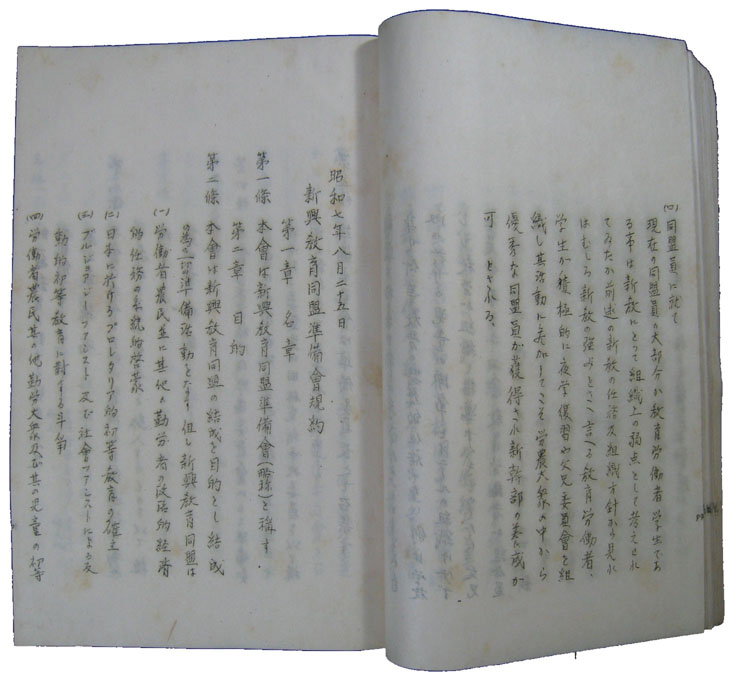 (ロ) 同盟員に就て
現在の同盟員の大部分が教育労働者学生であ
る事は新教にとって組織上の弱点として考えられ
てゐたが前述の新教の任務及組織方針から見れ
ばむしろ新教の強みとさへ言へる教育労働者、
学生が積極的に夜学復習会父兄委員会を組
織し其活動に参加してこそ労農大衆の中から
優秀な同盟員が獲得され新幹部の養成が
可 とされる、
昭和七年八月二十五日
新興教育同盟準備會規約
第一章 名章
第一條 本會は新興教育同盟準備會(略称)と稱す、
第二章 目的
第二條 本會は新興教育同盟の結成を目的とし結成
準備活動をなす 但し新興教育同盟は
(一) 労働者農民並に其他の勤労者の政治的経済
的任務の系統的啓蒙
(二) 日本に於けるプロレタリア的初等教育の確立
(三) ブルジョアジー ファシスト及び社会ファシストによる反
動的初等教育に対する斗争
(四) 労働者農民其の他勤労大衆及び其の児童の初等